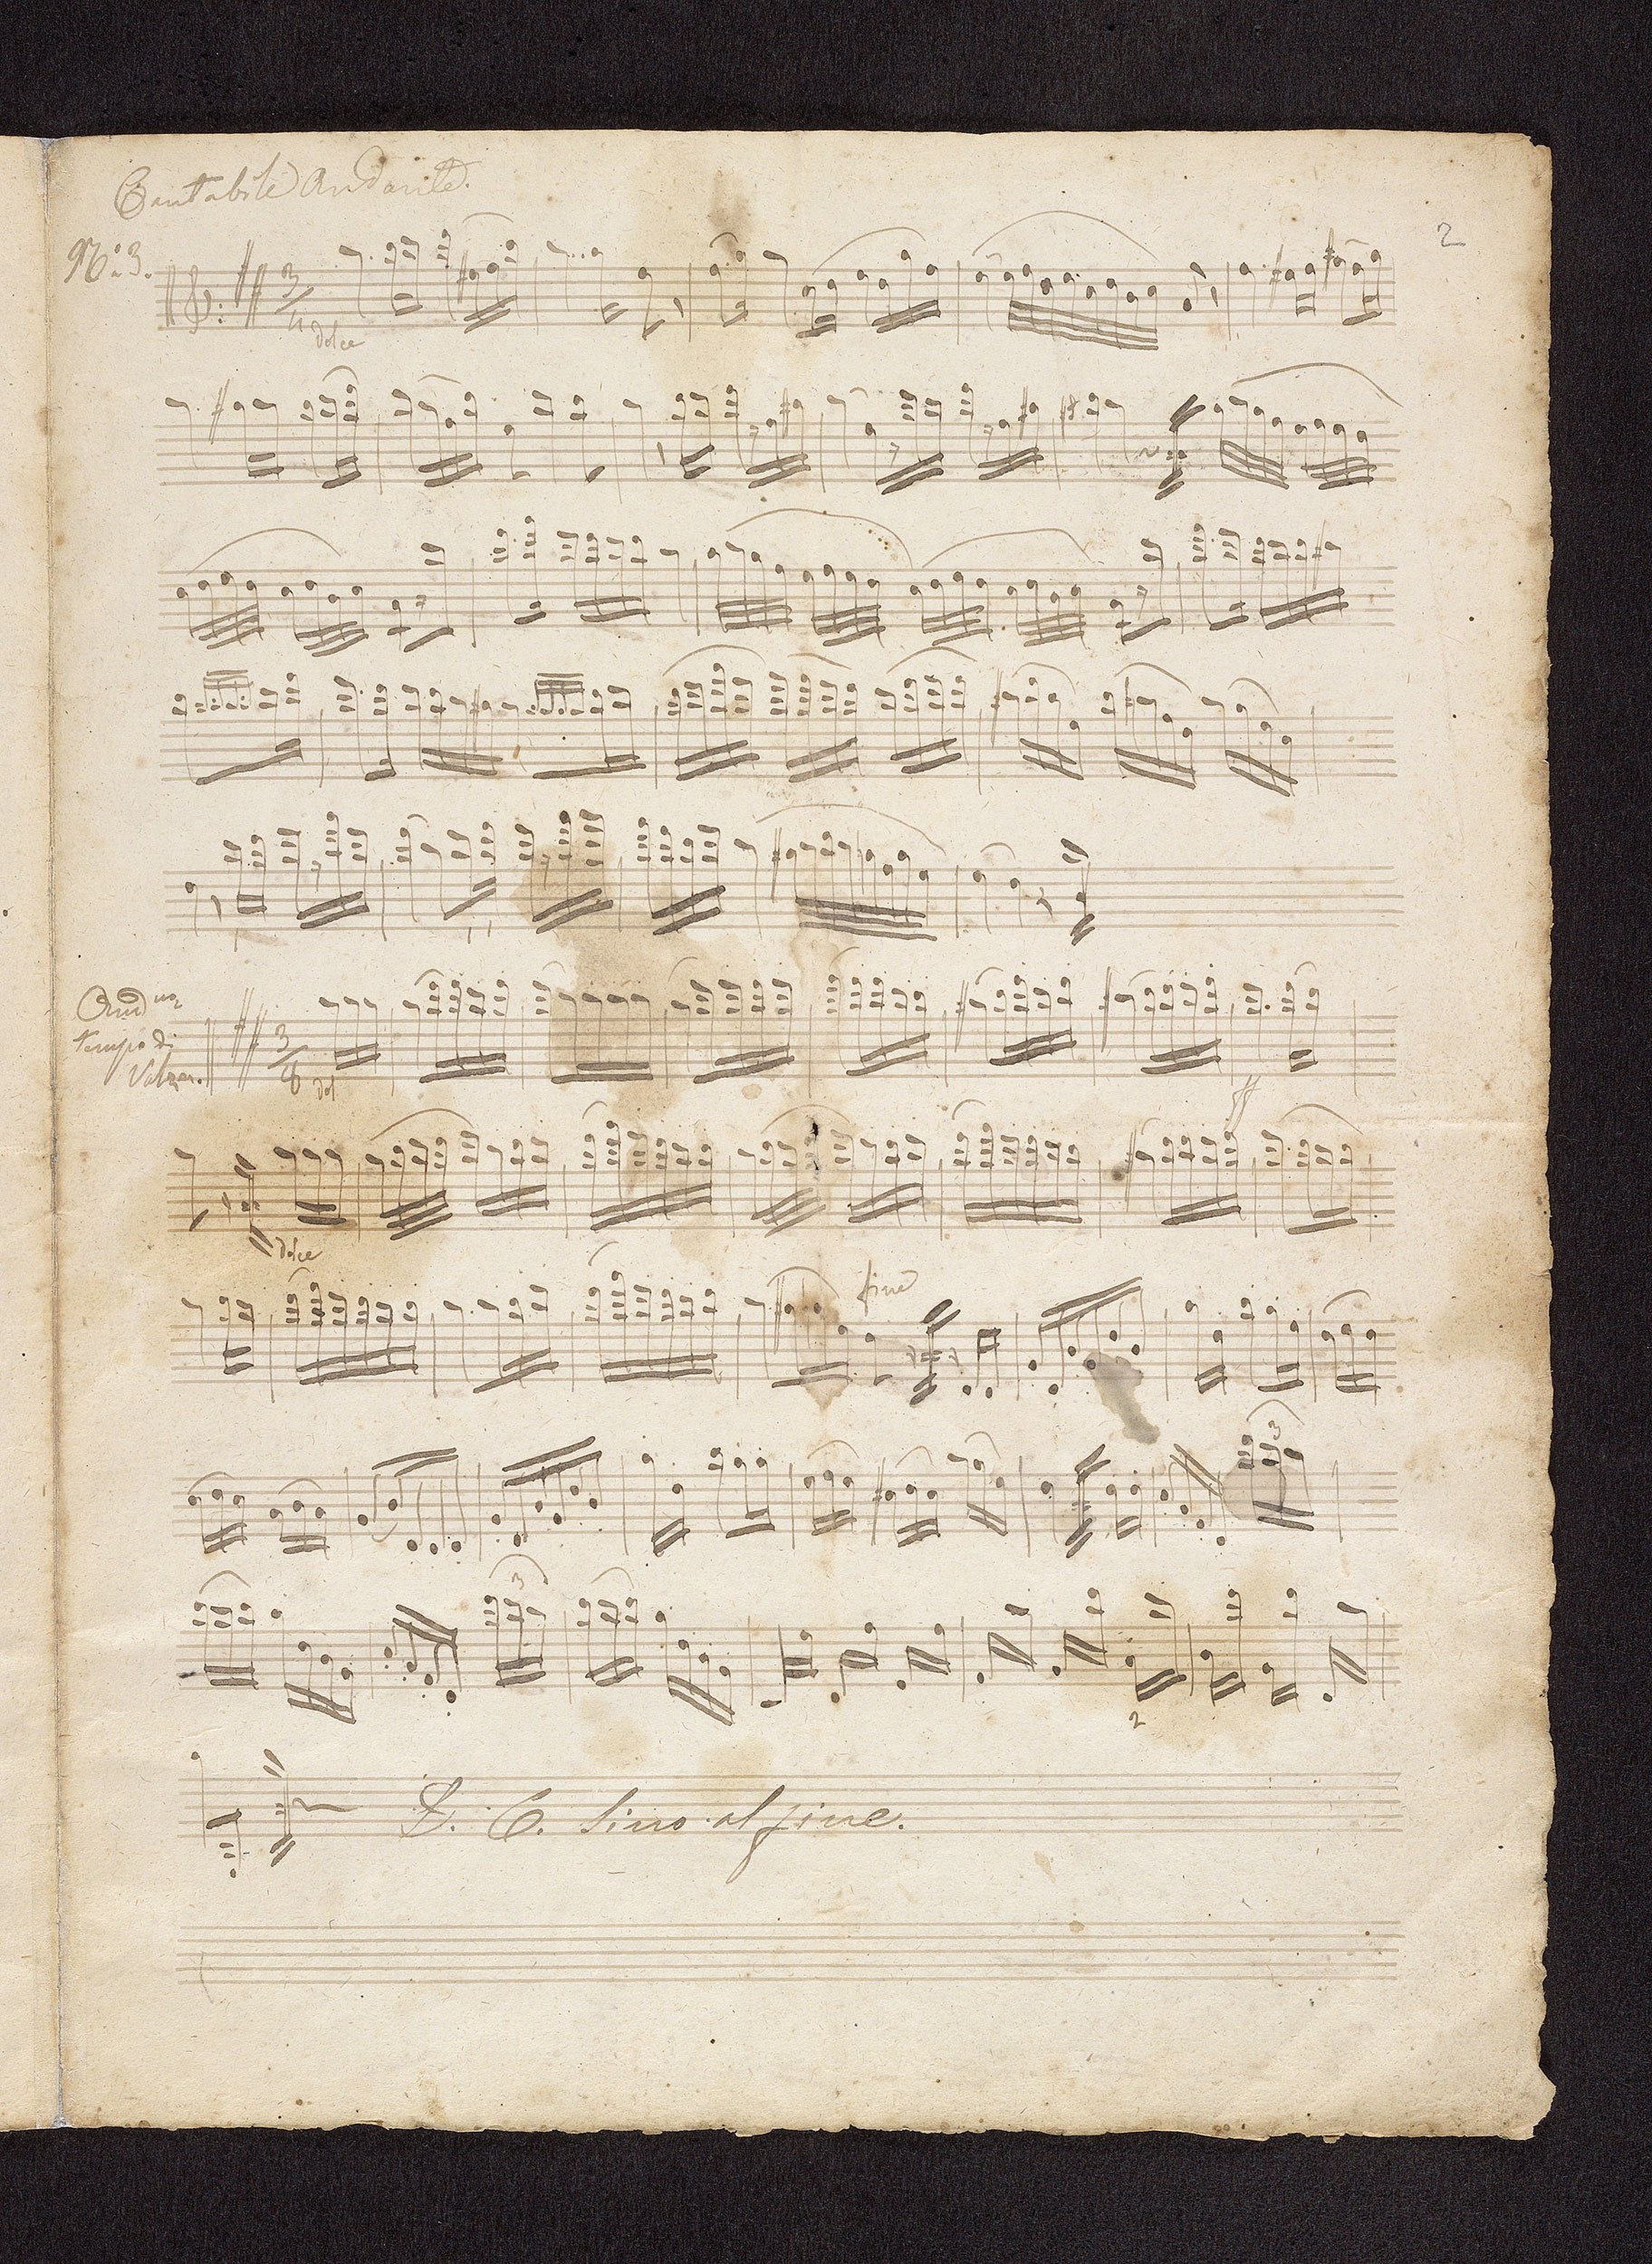 Cantabile Andante.
2
No. 3.
3/4
dolce
And.no
tempo di
Valzer.
3/8
dol
ff
dolce
fine
3
3
2
D. C. sino al fine.